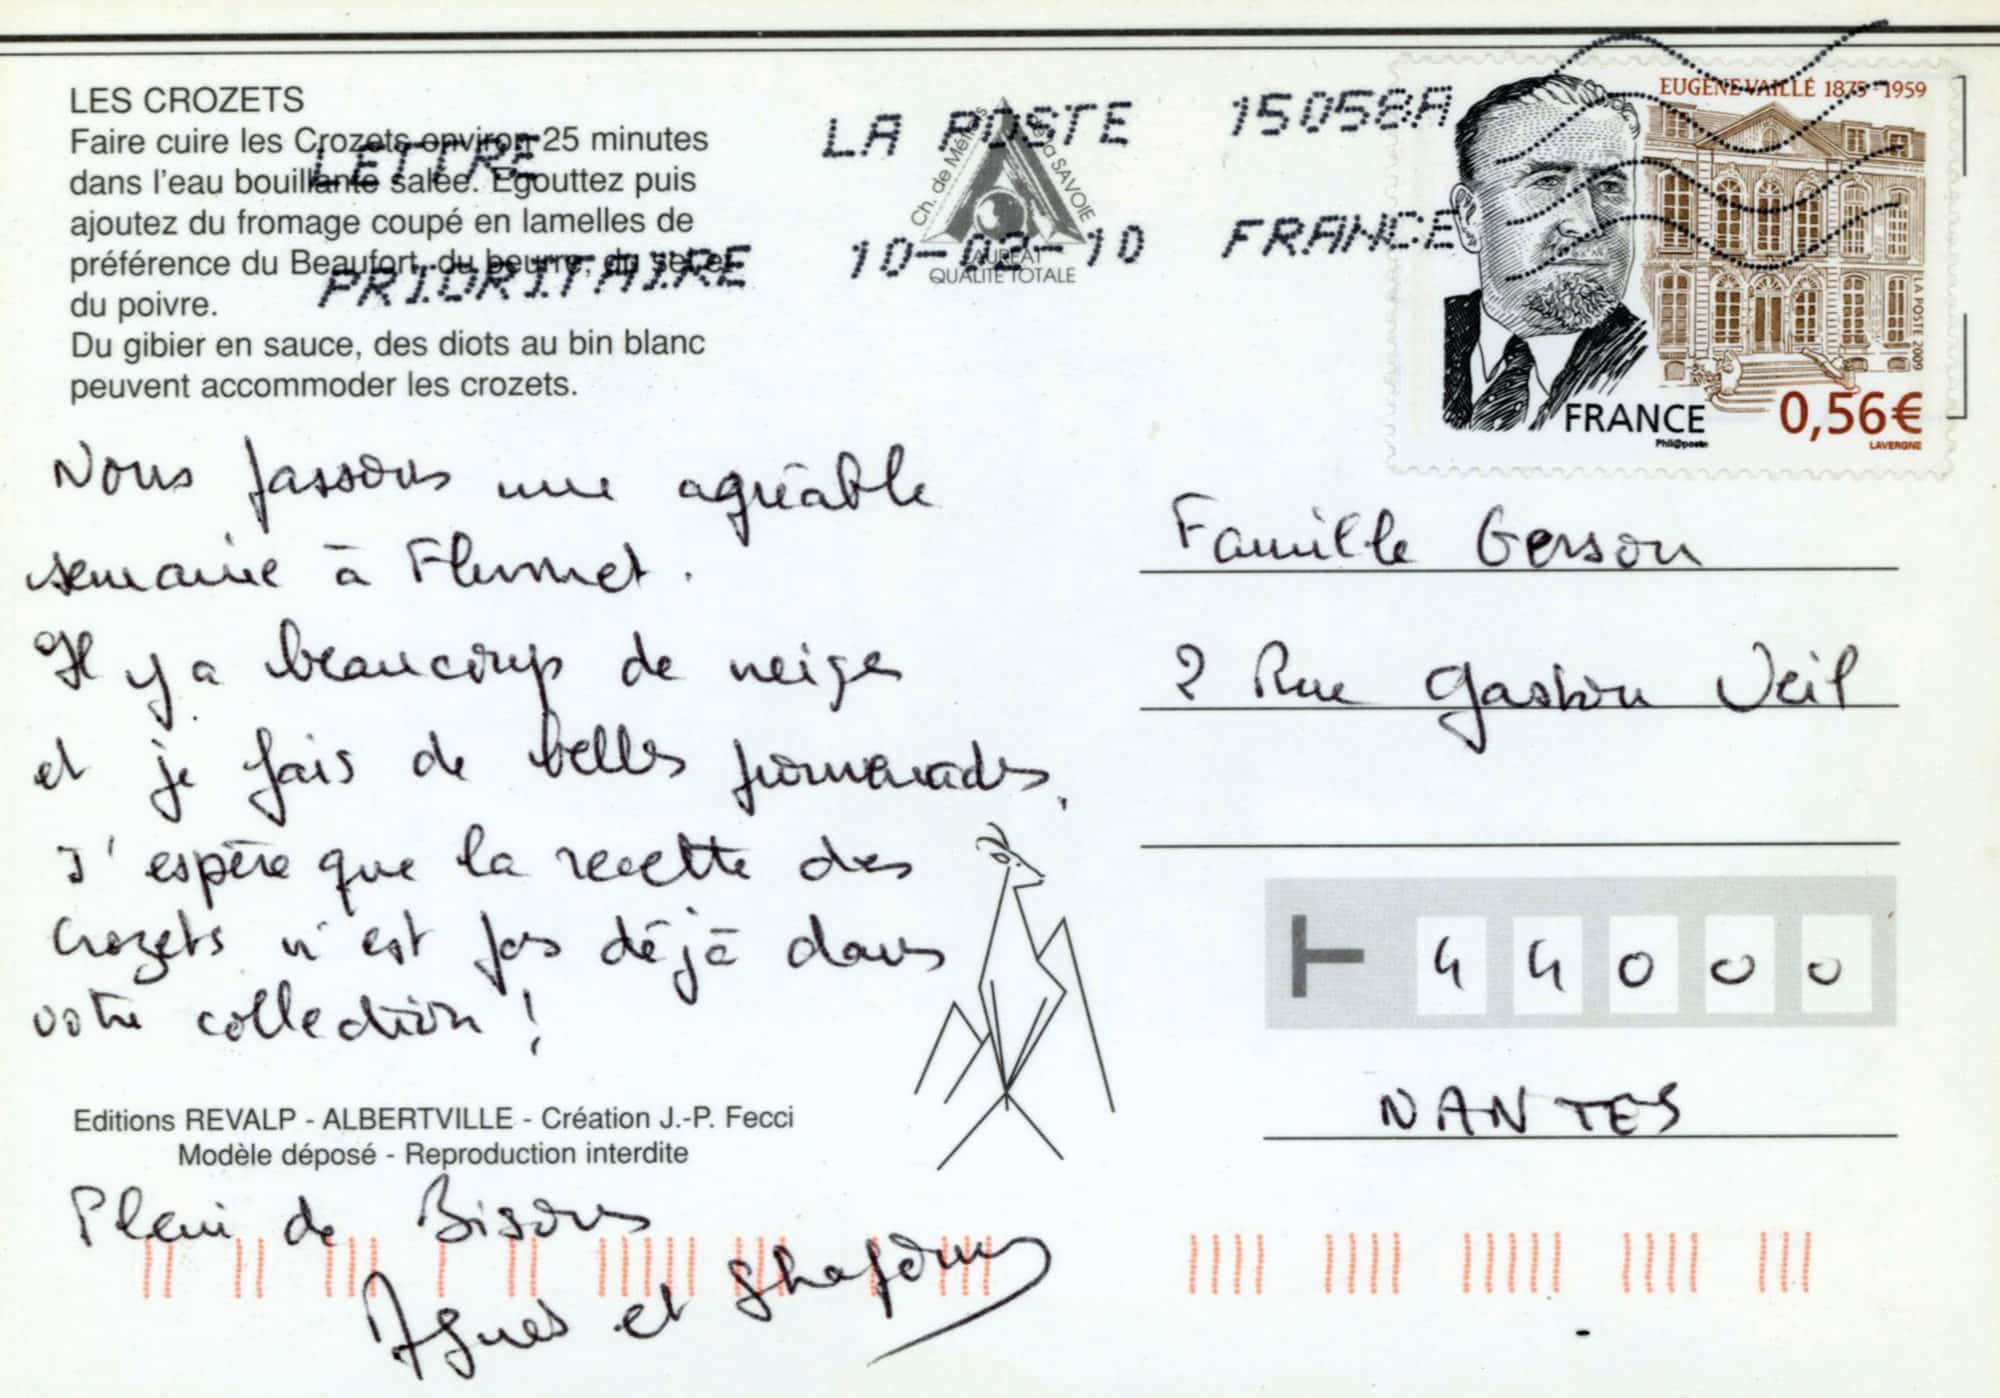 LES CROZETS
Faire cuire les Crozets environ 25 minutes
dans l'eau bouillante salée. Egouttez puis
ajoutez du fromage coupé en lamelles de
préférence du Beaufort, du beurre, du sel et
du poivre.
Du gibier en sauce, des diots au bin blanc
peuvent accommoder les crozets.
LETTRE
PRIORITAIRE
LA POSTE 15058A
10-02-10 FRANCE
Ch. de Métiers
de la SAVOIE
LAUREAT
QUALITÉ TOTALE
EUGÈNE VAILLÉ 1875-1959
LA POSTE 2009
FRANCE
Phil@poste
0,56€
LAVERGNE
Nous passons une agréable
semaine à Flumet.
Il y a beaucoup de neige
et je fais de belles promenades.
J'espère que la recette des
Crozets n'est pas déjà dans
votre collection !
Editions REVALP - ALBERTVILLE - Création J.-P. Fecci
Modèle déposé - Reproduction interdite
Plein de Bisous
Agnès et
Famille Gerson
2 Rue Gaston Veil
44000
NANTES